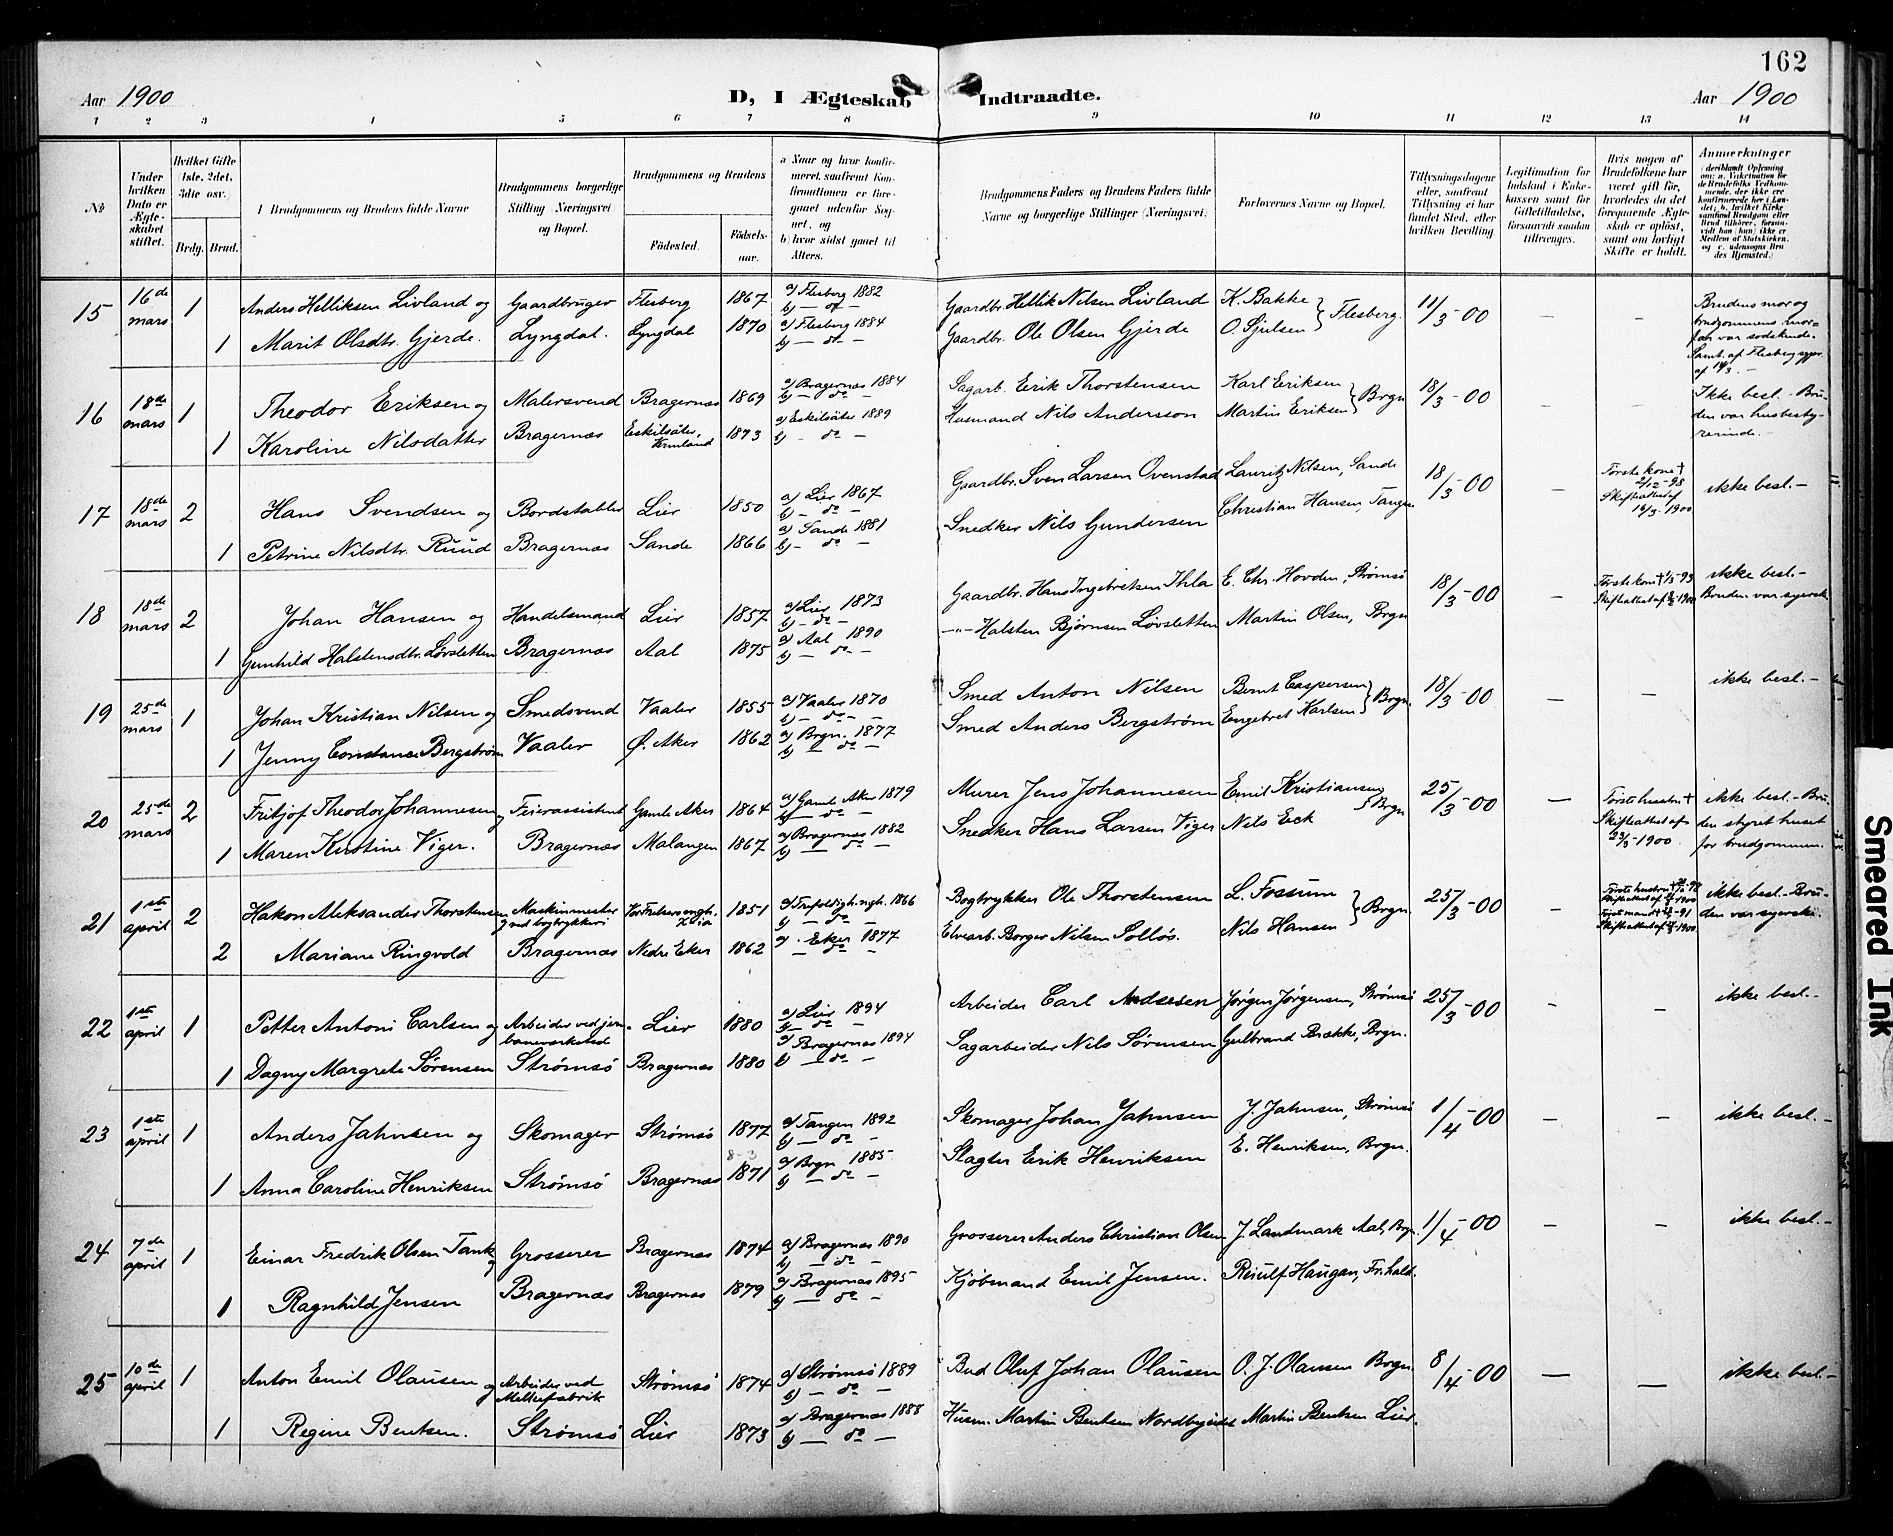 162
Aar 1900
D, I Ægteskab Indtraadte.
Aar 1900
1 2 3 4 5 6 7 8 9 10 11 12 13 14
No
Under hvilken Dato er Ægteskabet stiftet.
Hvilket Gifte (1ste, 2det, 3die osv.)
Brdg. Brud.
Brudgommens og Brudens fulde Navne
Brudgommens borgerlige Stilling (Næringsvei) og Bopæl.
Brudgommens og Brudens
Födested. Födselsaar.
a Naar og hvor konfirmeret, saafremt Konfirmationen er foregaaet udenfor Sognet, og b) hvor sidst gaaet til Alters.
Brudgommens Faders og Brudens Faders fulde Navne og borgerlige Stillinger (Næringsvei)
Forlovernes Navne og Bopæl.
Tillysningsdagene eller, saafremt Tillysning ei har fundet Sted, efter hvilken Bevilling.
Legitimation for Indskud i Enkekassen samt for Giftetilladelse, forsaavidt saadan tiltrænges.
Hvis nogen af Brudefolkene har været gift før, hvorledes da det foregaaende Ægteskab er opløst, samt om lovligt Skifte er holdt.
Anmærkninger
15 16de mars 1 Anders Helliksen Livland og Gaardbruger Flesberg 1867 a) Flesberg 1882 b) — do — Gaardbr. Hellik Nilsen Livland K. Bakke } Flesberg. 11/3-00 — — Brudens mor og brudgommens morfar var sødskende. Samt. af Flesberg sgpr. af 14/3. —
1 Marit Olsdtr. Gjerde. Lyngdal. Lyngdal 1870 a) Flesberg 1884 b) — do — Gaardbr. Ole Olsen Gjerde O. Sjulsen
16 18de mars 1 Theodor Eriksen og Malersvend Bragernæs 1869 a) Bragernæs 1884 b) — do — Sagarb. Erik Thorstensen Karl Eriksen } Brgn 18/3-00 — — Ikke besl. - Bruden var husbestyrerinde. —
1 Karoline Nilsdatter Bragernæs Eskilsäter, Vermland 1873 a) Eskilsäter 1889 b) - do — Husmand Nils Andersson Martin Eriksen
17 18de mars 2 Hans Svendsen og Bordstabler Lier 1850 a) Lier 1867 b) — do — Gaardbr. Sven Larsen Ovenstad Lauritz Nilsen, Sande 18/3-00 — Første kone † 2/12-98 Skifteattest af 16/3-1900 ikke besl. -
1 Petrine Nilsdtr. Ruud Bragernæs Sande 1866 a) Sande 1881 b) - do — Snedker Nils Gundersen Christian Hansen Tangen
18 18de mars 2 Johan Hansen og Handelsmand Lier 1857 a) Lier 1873 b) — do — Gaardbr. Hans Ingebretsen Ihla E. Chr. Hovden, Strømsø 18/3-00 — ikke besl. - Bruden var syerske
1 Gunhild Halstensdtr. Løvsletten Bragernæs Aal 1875 a) Aal 1890 b) — do — —"— Halsten Bjørnsen Løvsletten Martin Olsen, Brgn
19 25de mars 1 Johan Kristian Nilsen og Smedsvend Vaaler 1855 a) Vaaler 1870 b) — do — Smed Anton Nilsen Bernt Caspersen } Brgn. 18/3-00 — — ikke besl. -
1 Jenny Constance Bergstrøm Vaaler Ø. Aker 1862 a) Brgn. 1877 b) — do — Smed Anders Bergstrøm Engebret Karlsen
20 25de mars 2 Fritjof Theodor Johannesen og Feierassistent Gamle Aker 1864 a) Gamle Aker 1879 b) — do — Murer Jens Johannesen Emil Kristiansen } Brgn 25/3-00 — Første hustru † Skifteattest af 23/3-1900 ikke besl. - Bruden styret huset for brudgommen.
1 Maren Kirstine Viger. Bragernæs Malangen 1867 a) Bragernæs 1882 b) — do — Snedker Hans Larsen Viger Nils Eck
21 1ste april 2 Hakon Aleksander Thorstensen Maskinmester ved bogtrykkeri Vor Frelsers mgh. Xania 1851 a) Trefoldigh. mgh. 1866 b) — do — Bogtrykker Ole Thorstensen L. Fossum } Brgn. 25/3-00 — ikke besl. - Bruden var syerske.
2 Mariane Ringvold Bragernæs Nedre Eker 1862 a) Eker 1877 — do — Elvearb. Borger Nilsen Solløs. Nils Hansen
22 1ste april 1 Petter Antoni Carlsen og Arbeider ved jernbaneverksted Lier 1880 a) Lier 1894 b) — do — Arbeider Carl Andersen Jørgen Jørgensen, Strømsø 25/3-00 — — ikke besl. -
1 Dagny Margrete Sørensen Strømsø Bragernæs 1880 a) Bragernæs 1894 b) — do — Sagarbeider Nils Sørensen Gulbrand Brække, Brgn.
23 1ste april 1 Anders Jahnsen og Skomager Strømsø 1877 a) Tangen 1892 b) — do — Skomager Johan Jahnsen J. Jahnsen, Strømsø 1/4-00 — — ikke besl. -
8-3
1 Anna Caroline Henriksen Strømsø Bragernæs 1871 a) Brgn 1885 b) — do — Slagter Erik Henriksen E. Henriksen, Brgn.
24 7de april 1 Einar Fredrik Olsen Tank og Grosserer Bragernæs 1874 a) Bragernæs 1890 b) — do — Grosserer Anders Christian Olsen J. Landmark Aal, Brgn 1/4-00 — — ikke besl. -
1 Ragnhild Jensen Bragernæs Bragernæs 1879 a) Bragernæs 1895 b) — do — Kjøbmand Emil Jensen. Reiulf Haugan, Fr.hald.
25 10de april 1 Anton Emil Olausen og Arbeider ved Melkefabrik Strømsø 1874 a) Strømsø 1889 b) — do — Bud Oluf Johan Olausen O. J. Olausen Brgn. 8/4-00 — — ikke besl. -
1 Regine Bentsen. Strømsø Lier 1873 a) Bragernæs 1888 b) — do — Husm. Martin Bentsen Nordbyeidet Martin Bentsen Lier
Smeared Ink